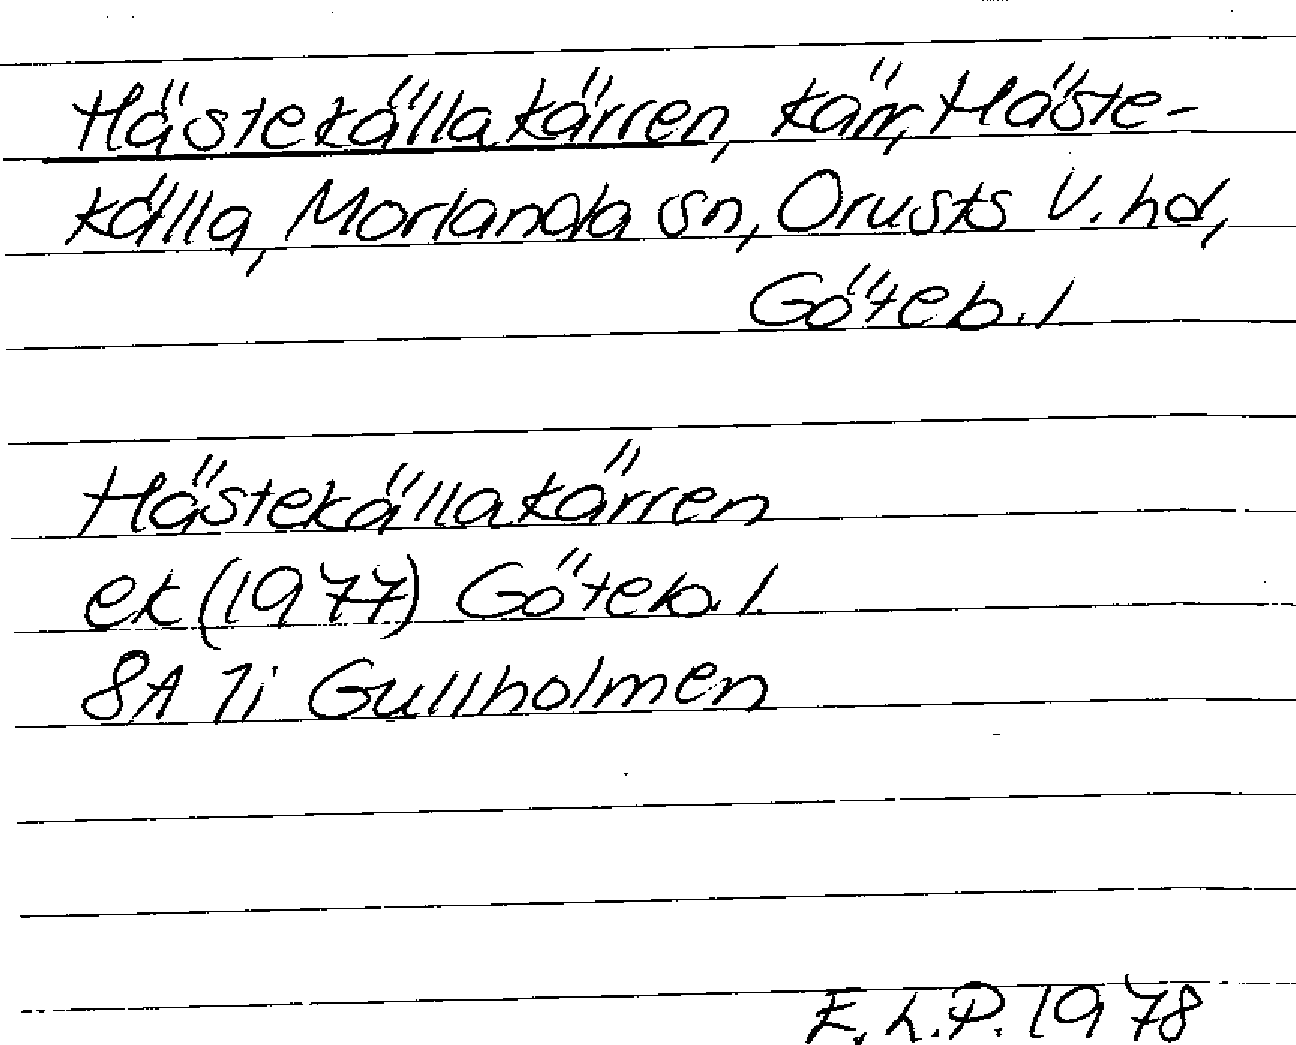 Hästekällakärren, kärr, Häste-
källa, Morlanda sn, Orusts V. hd,
Göteb. l
Hästekällakärren
ek (1977) Göteb. l.
8A 7i Gullholmen
E. L. P. 1978